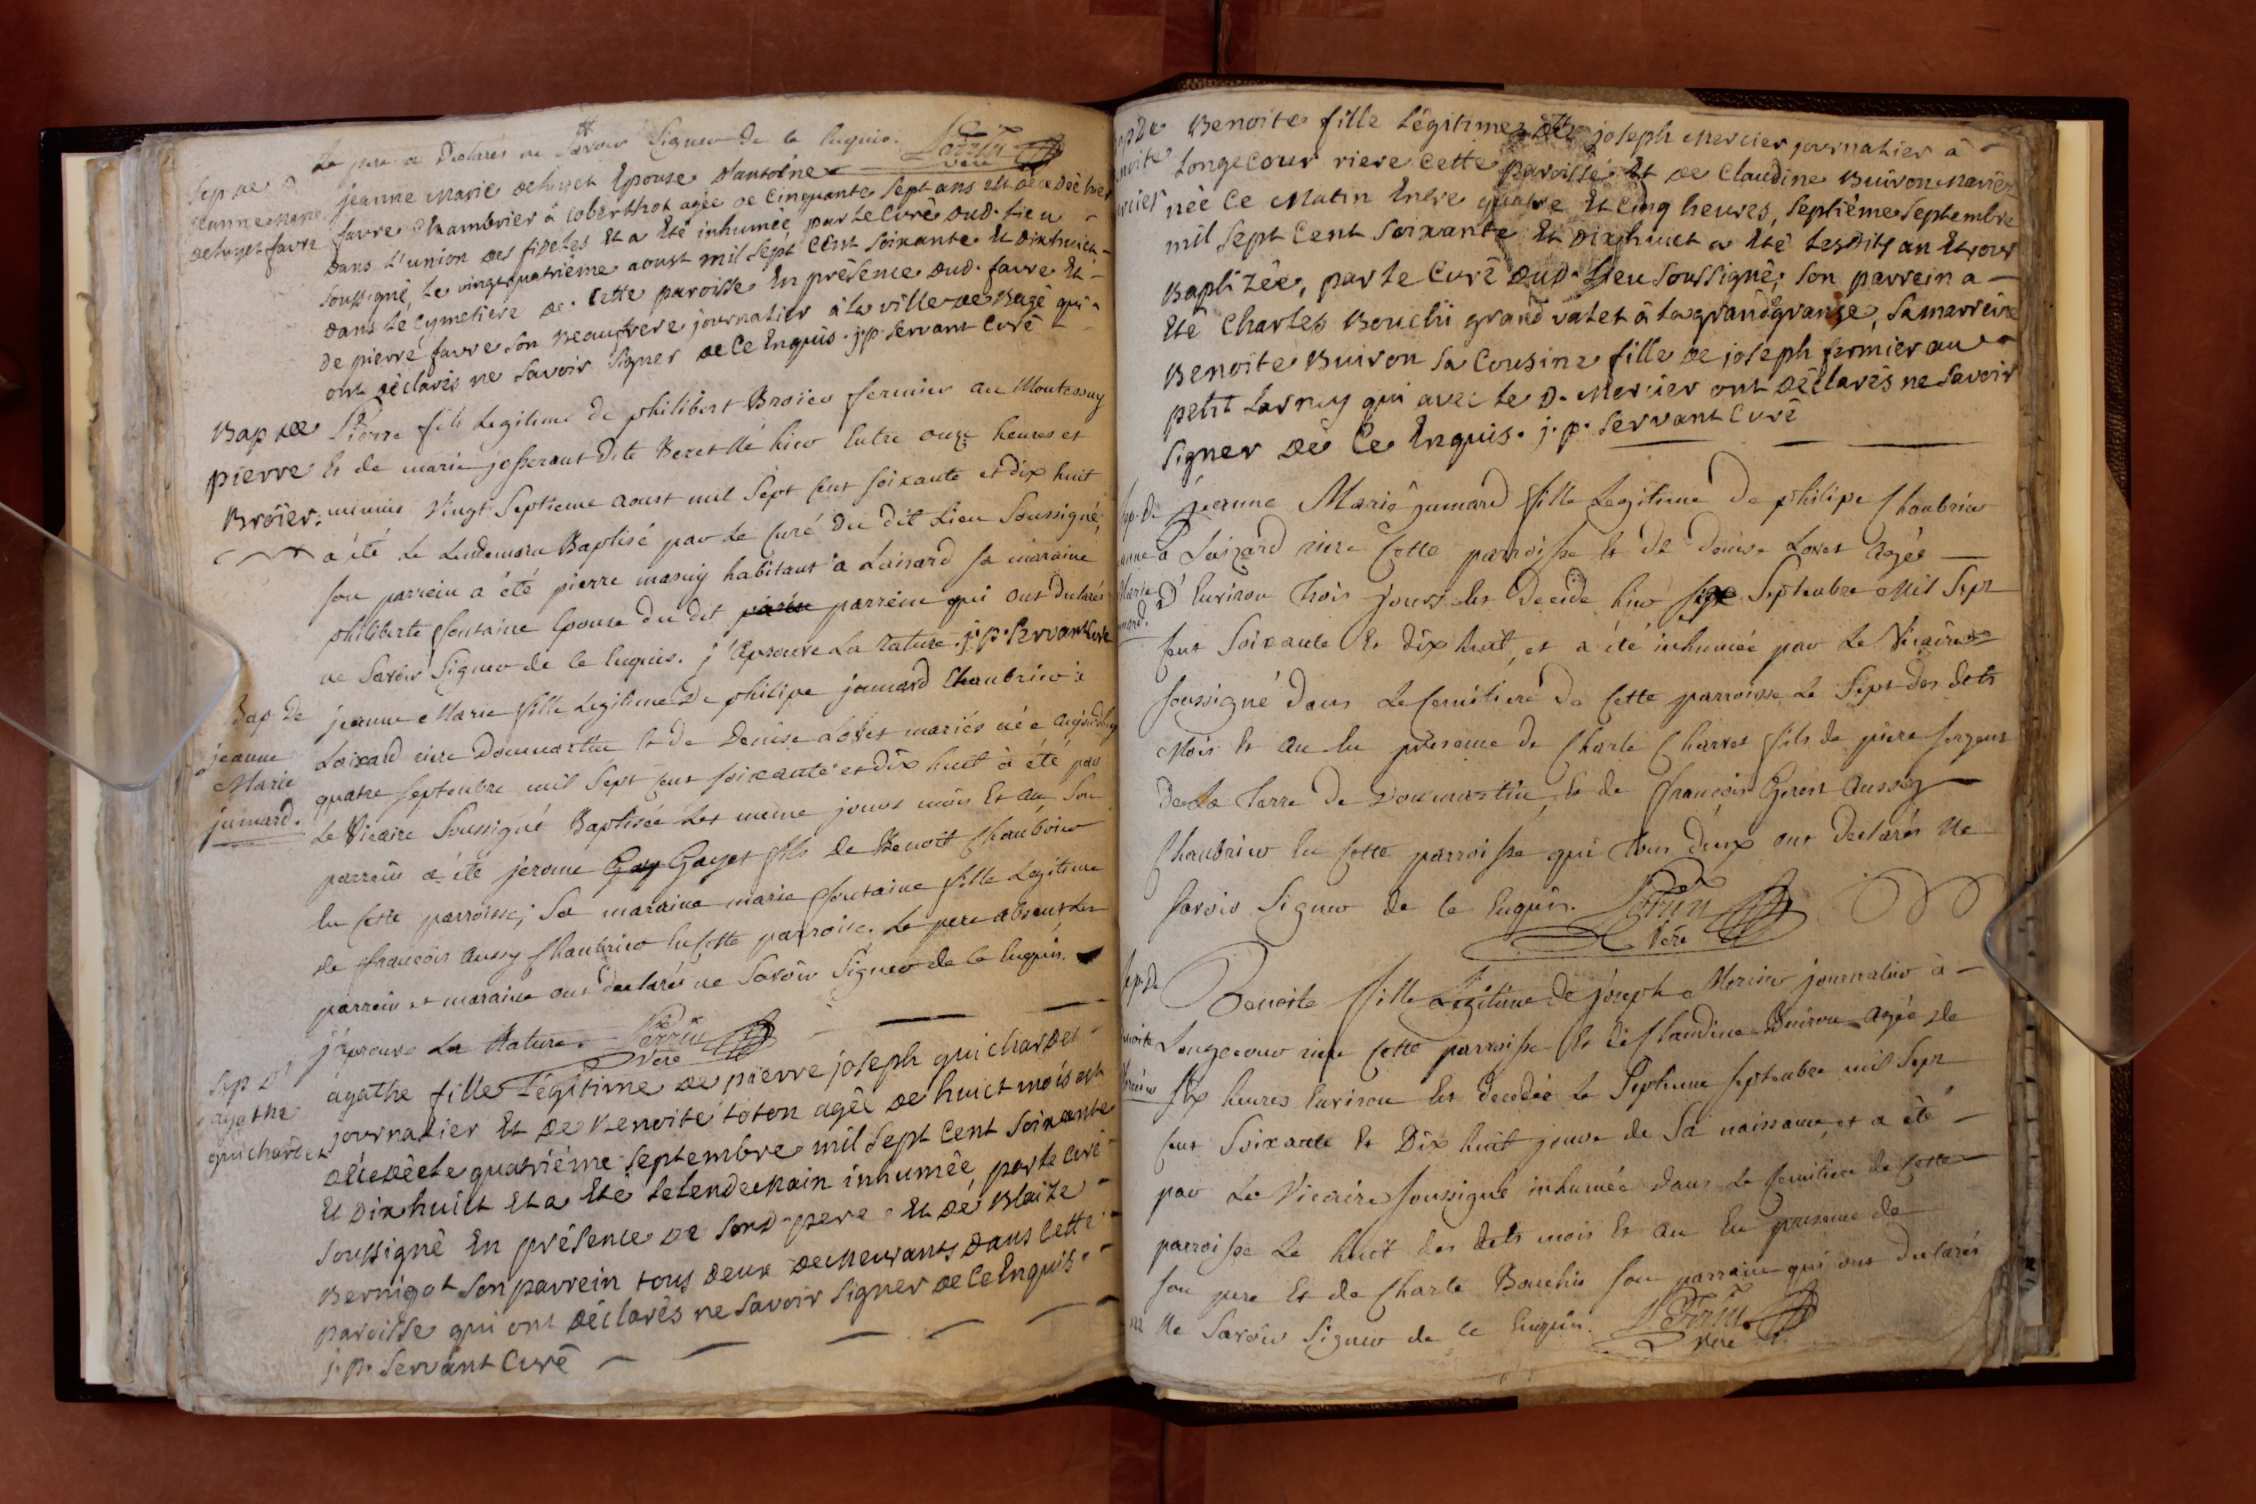 Le pere a Declarés ne Savoir Signer De ce Enquis. Perrin
vere
Sep de
jeanne marie
dehuget favre
jeanne marie dehuget Epouse d'antoine
favre Chambrier à Coberthod agée de Cinquante Sept ans est decedée hier
dans L'union des fideles Et a Eté inhumée, par le Curé dud. lieu
soussigné, le vingtquatriéme aoust mil Sept Cent Soixante Et dixhuict
dans le Cymetiere de Cette paroisse En présence dud. favre Et
de pierre favre son Beaufrere journalier à la ville de Bagé qui
ont déclarés ne savoir signer de Ce Enquis. j. p. servant Curé
Bap de
pierre
Broïer.
Pierre fils Legitime de philibert Broier fermier au Montessuy
Et de marie josserant Dite Veret Né hier Entre onze heures et
minuit Vingt Septieme aoust mil Sept Cent soixante et dix huit
a été Le Lendemain Baptisé par Le Curé Du dit Lieu Soussigné,
son parrein a été pierre masuy habitant à Loisard Sa maraine
philiberte fontaine Epouse du dit parrein qui ont Declarés
ne Savoir Signer de Ce Enquis. j'Aprouve La rature. j. p. Servant Curé
Bap De
jeanne
Marie
jumard.
jeanne Marie fille Legitime De philipe jumard Chambrier à
Loizard riere Dommartin Et de Denise Loret mariés née aujourd'huy
quatre septembre mil Sept Cent soixante et dix huit à été par
Le Vicaire Soussigné Baptisée Les meme jours mois Et an Son
parrein a été jerome Gay Gayet fils de Benoit Chambrier
En Cette parroisse; Sa maraine marie fontaine fille Legitime
de françois aussy Chambrier En Cette parroise. Le pere absent Les
parrein et maraine ont declarés ne Savoir Signer de Ce Enquis.
j'aprouve La Rature. Perrin
vere
Sep d'
agathe
guichardet
agathe fille Légitime de pierre joseph guichardet
journalier Et de Benoite toton agée de huict mois est
décédée le quatriéme septembre mil Sept Cent Soixante
Et Dixhuict Et a Eté le lendemain inhumée, par le Curé
soussigné En présence de sond. pere Et de Blaize
Bernigot son parrein tous deux demeurants dans Cette
paroisse qui ont déclarés ne savoir signer de Ce Enquis.
j. p. servant Curé
Benoite fille Légitime de joseph Mercier journalier à
Longecour riere Cette paroisse Et de Claudine Buiron Mariés
née Ce Matin Entre quatre Et Cinq heures, septiéme septembre
mil Sept Cent Soixante Et dixhuict a Eté lesdits an Et jour
Baptizée, par le Curé dud. Lieu soussigné; son parrein a
Eté Charles Bouchi grand valet à la grand grange, sa marreine
Benoite Buiron sa Cousine fille de joseph fermier au
petit Larnuy qui avec le D. Mercier ont déclarés ne savoir
signer de Ce Enquis. j. p. servant Curé
jeanne Marie jumard fille Legitime De philipe Chambrier
à Loizard riere Cette parroisse Et de denise Loret agée
d'Environ trois jours Est Decede hier Six Septembre Mil Sept
Cent Soixante Et dix huit, et a été inhumée par Le Vicaire
soussigné dans Le Cemitiere de Cette parroisse Le Sept Des dits
mois Et an En presence de Charle Charvet fils de piere sergent
de La Terre de Dommartin, Et de françois aussy
Chambrier En Cette parroisse qui tous deux ont Declarés Ne
savoir Signer de Ce Enquis. Perrin
vere
Sep. de
Benoite fille Legitime de joseph Mercier journalier à
Longecour riere Cette parroisse Et de Claudine Buiron agée de
Six heures Environ Est decedée Le Septieme septembre mil Sept
Cent Soixante Et Dix huit jour de Sa naissance, et a été
par Le Vicaire soussigné inhumée Dans Le Cemitiere de Cette
parroisse Le huit des dits mois Et an En presence de
son pere Et de Charle Bouchi son parrain qui ont Declarés
Ne Savoir Signer de Ce Enquis. Perrin
vere